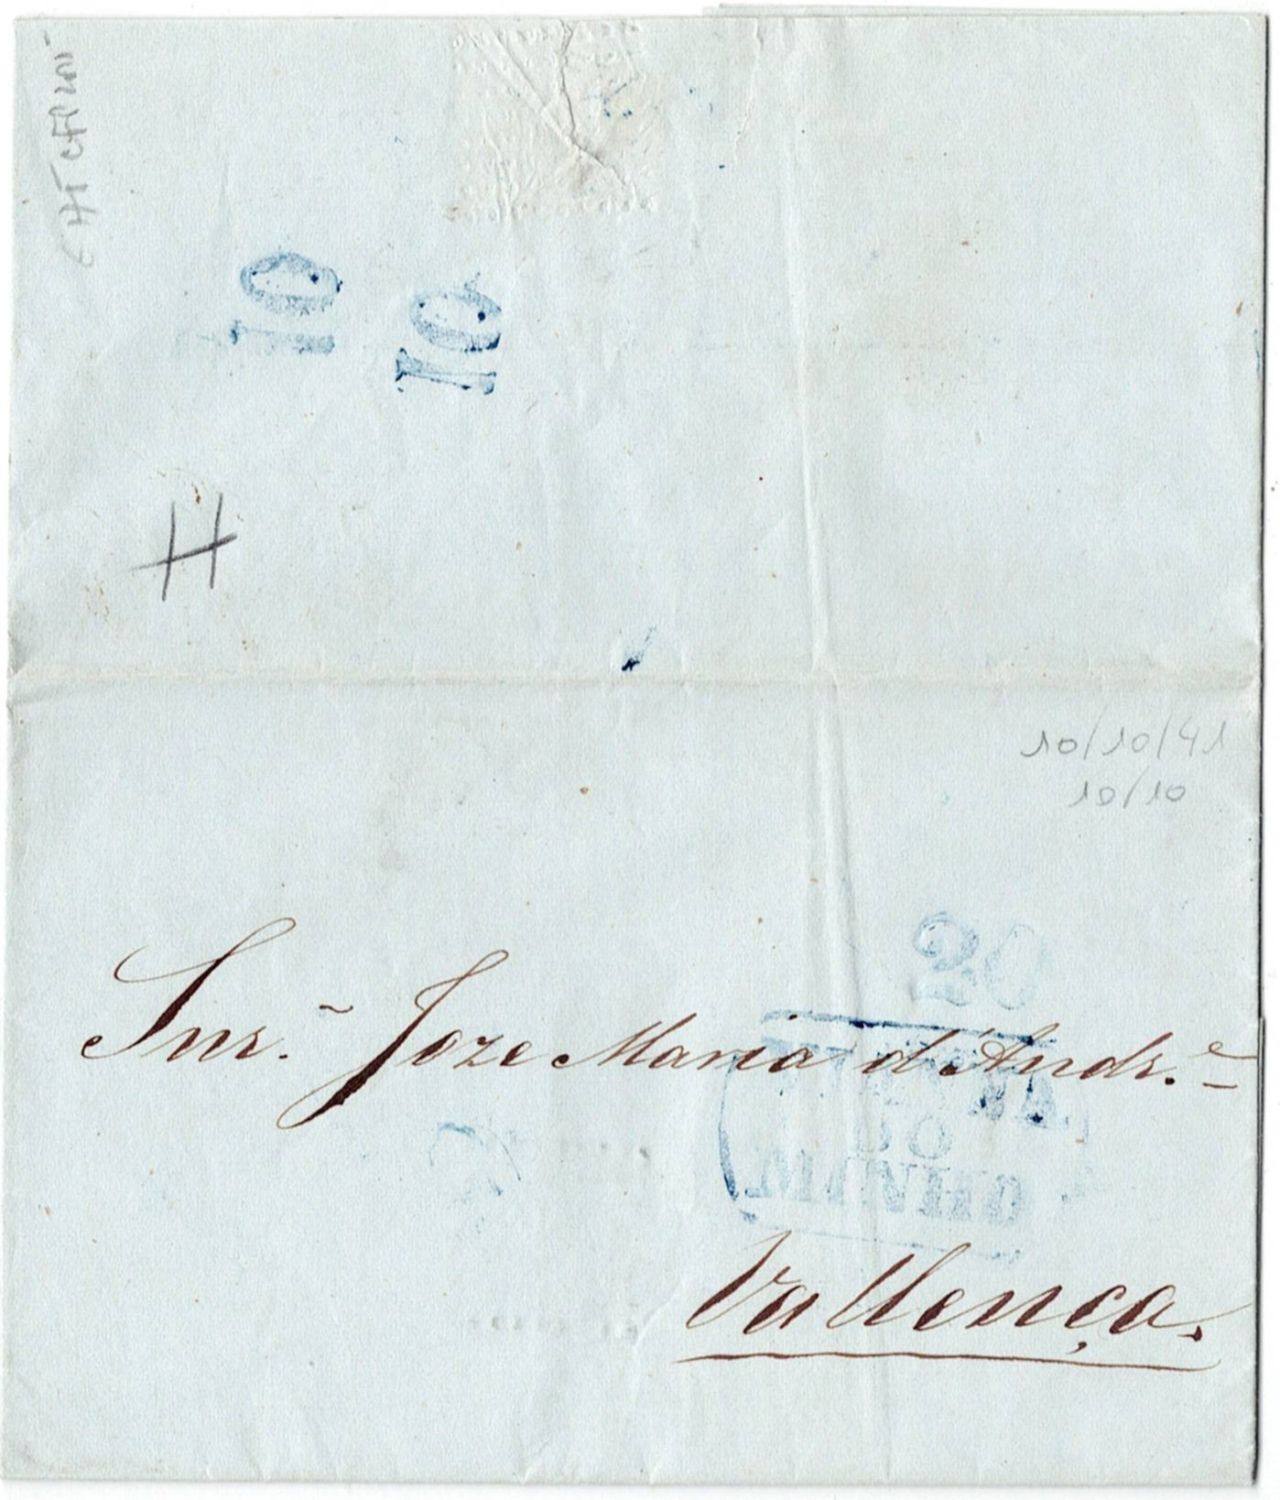 10
10
H
10/10/41
10/10
20
Snr. Joze Maria d'Andr.e
Vallença.